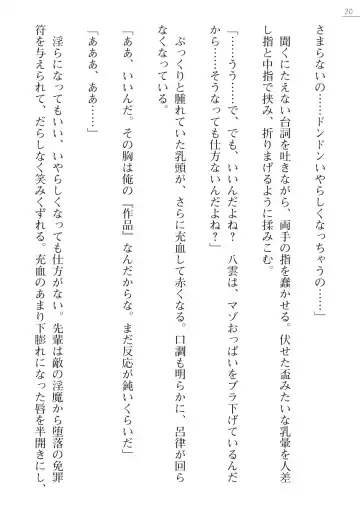 20
さまらないの……ドンドンいやらしくなっちゃうの……」
　聞くにたえない台詞を吐きながら、両手の指を蠢かせる。伏せた盃みたいな乳暈を人差
し指と中指で挟み、折りまげるように揉みこむ。
「……うう……で、でも、いいんだよね？　八雲は、マゾおっぱいをブラ下げているんだ
から……そうなっても仕方ないんだよね？」
　ぷっくりと腫れていた乳頭が、さらに充血して赤くなる。口調も明らかに、呂律が回ら
なくなっている。
「ああ、いいんだ。その胸は俺の『作品』なんだからな。まだ反応が鈍いくらいだ」
「あああ、ああ……」
　淫らになってもいい、いやらしくなっても仕方がない。先輩は敵の淫魔から堕落の免罪
符を与えられて、だらしなく笑みくずれる。充血のあまり下膨れになった唇を半開きにし、